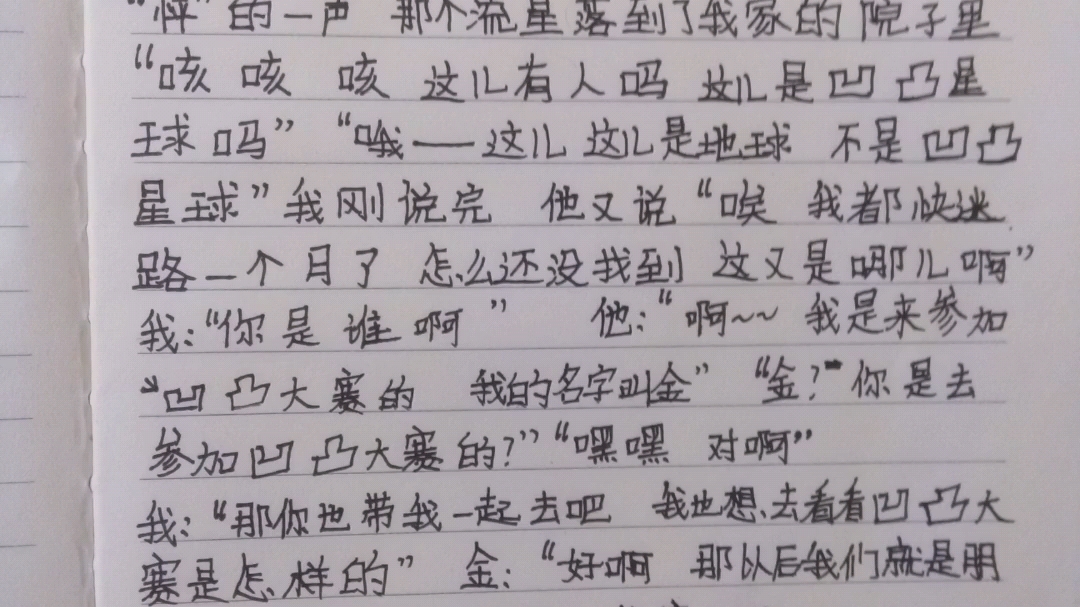 “怦”的一声 那个流星落到了我家的院子里
“咳 咳 咳 这儿有人吗 这儿是凹凸星
球吗” “哦——这儿 这儿是地球 不是凹凸
星球”我刚说完 他又说“唉 我都快迷
路一个月了 怎么还没找到 这又是哪儿啊”
我:“你是谁啊” 他:“啊~~ 我是来参加
“凹凸大赛的 我的名字叫金” “金?”你是去
参加凹凸大赛的?”“嘿嘿 对啊”
我:“那你也带我一起去吧 我也想去看看凹凸大
赛是怎样的” 金:“好啊 那以后我们就是朋